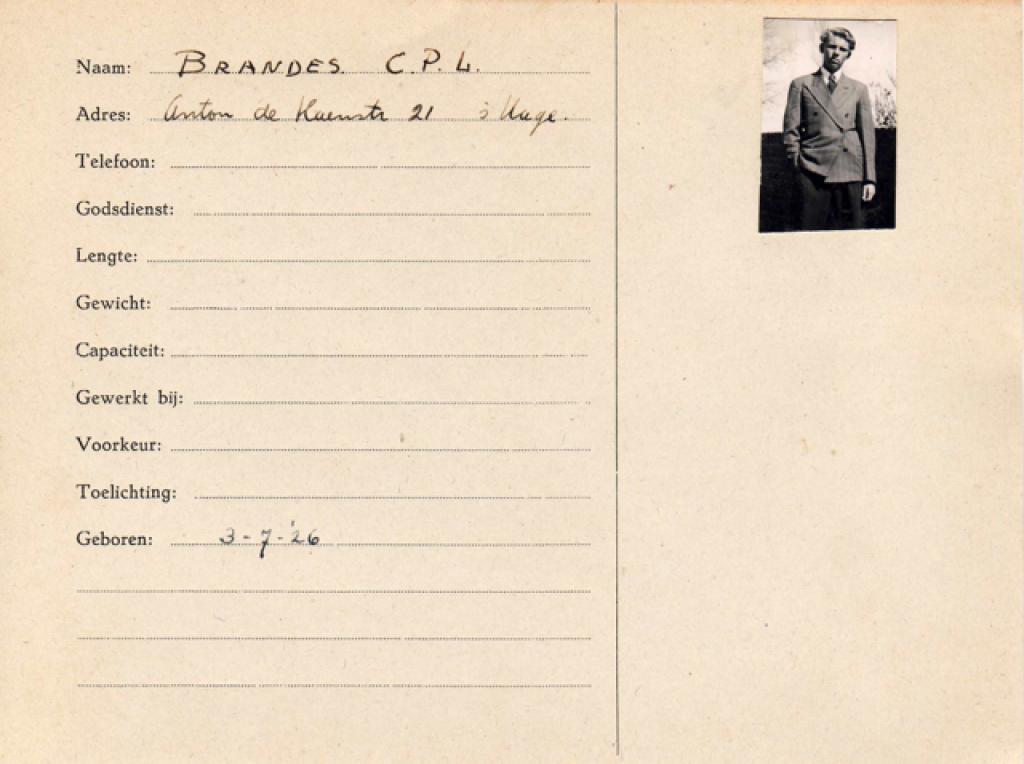 Naam: BRANDES. C.P.L.
Adres: Anton de Haenstr 21 's Hage.
Telefoon:
Godsdienst:
Lengte:
Gewicht:
Capaciteit:
Gewerkt bij:
Voorkeur:
Toelichting:
Geboren: 3-7-'26